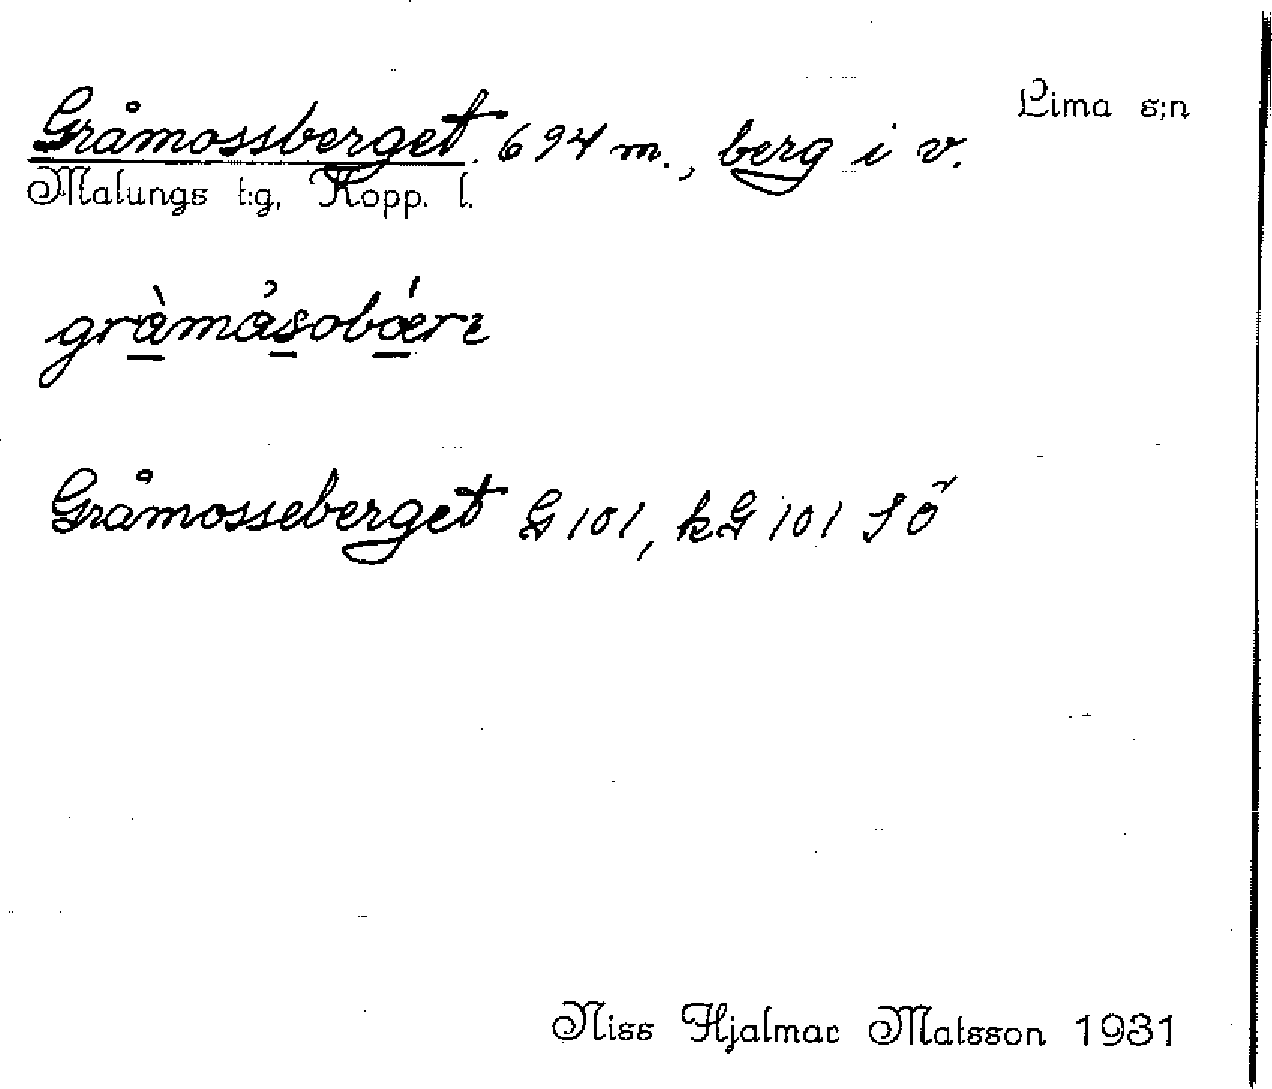 Lima s:n
Gråmossberget. 694 m., berg i v.
Malungs t:g, Kopp. l.
gràmåsobǽrı
Gråmosseberget G 101, kG 101 SÖ
Niss Hjalmar Matsson 1931